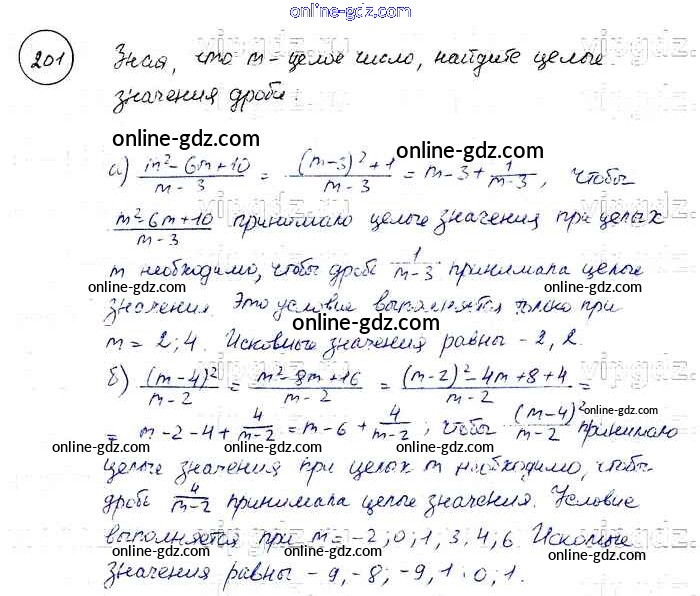 online-gdz.com
201 Зная, что m - целое число, найдите целые
значения дроби:
online-gdz.com
online-gdz.com
а) (m²-6m+10)/(m-3) = ((m-3)²+1)/(m-3) = m-3+1/(m-3), чтобы
(m²-6m+10)/(m-3) принимало целые значения при целых
m необходимо, чтобы дробь 1/(m-3) принимала целые
online-gdz.com
online-gdz.com
значения. Это условие выполняется только при
online-gdz.com
m = 2; 4. Искомые значения равны -2, 2.
б) (m-4)²/(m-2) = (m²-8m+16)/(m-2) = ((m-2)²-4m+8+4)/(m-2) =
= m-2-4+4/(m-2) = m-6+4/(m-2), чтобы (m-4)²/(m-2) принимало
online-gdz.com
online-gdz.com
целые значения при целых m необходимо, чтобы
дробь 4/(m-2) принимала целые значения. Условие
выполняется при m = -2; 0; 1; 3; 4; 6. Искомые
online-gdz.com
online-gdz.com
значения равны -9, -8; -9, 1; 0; 1.
online-gdz.com